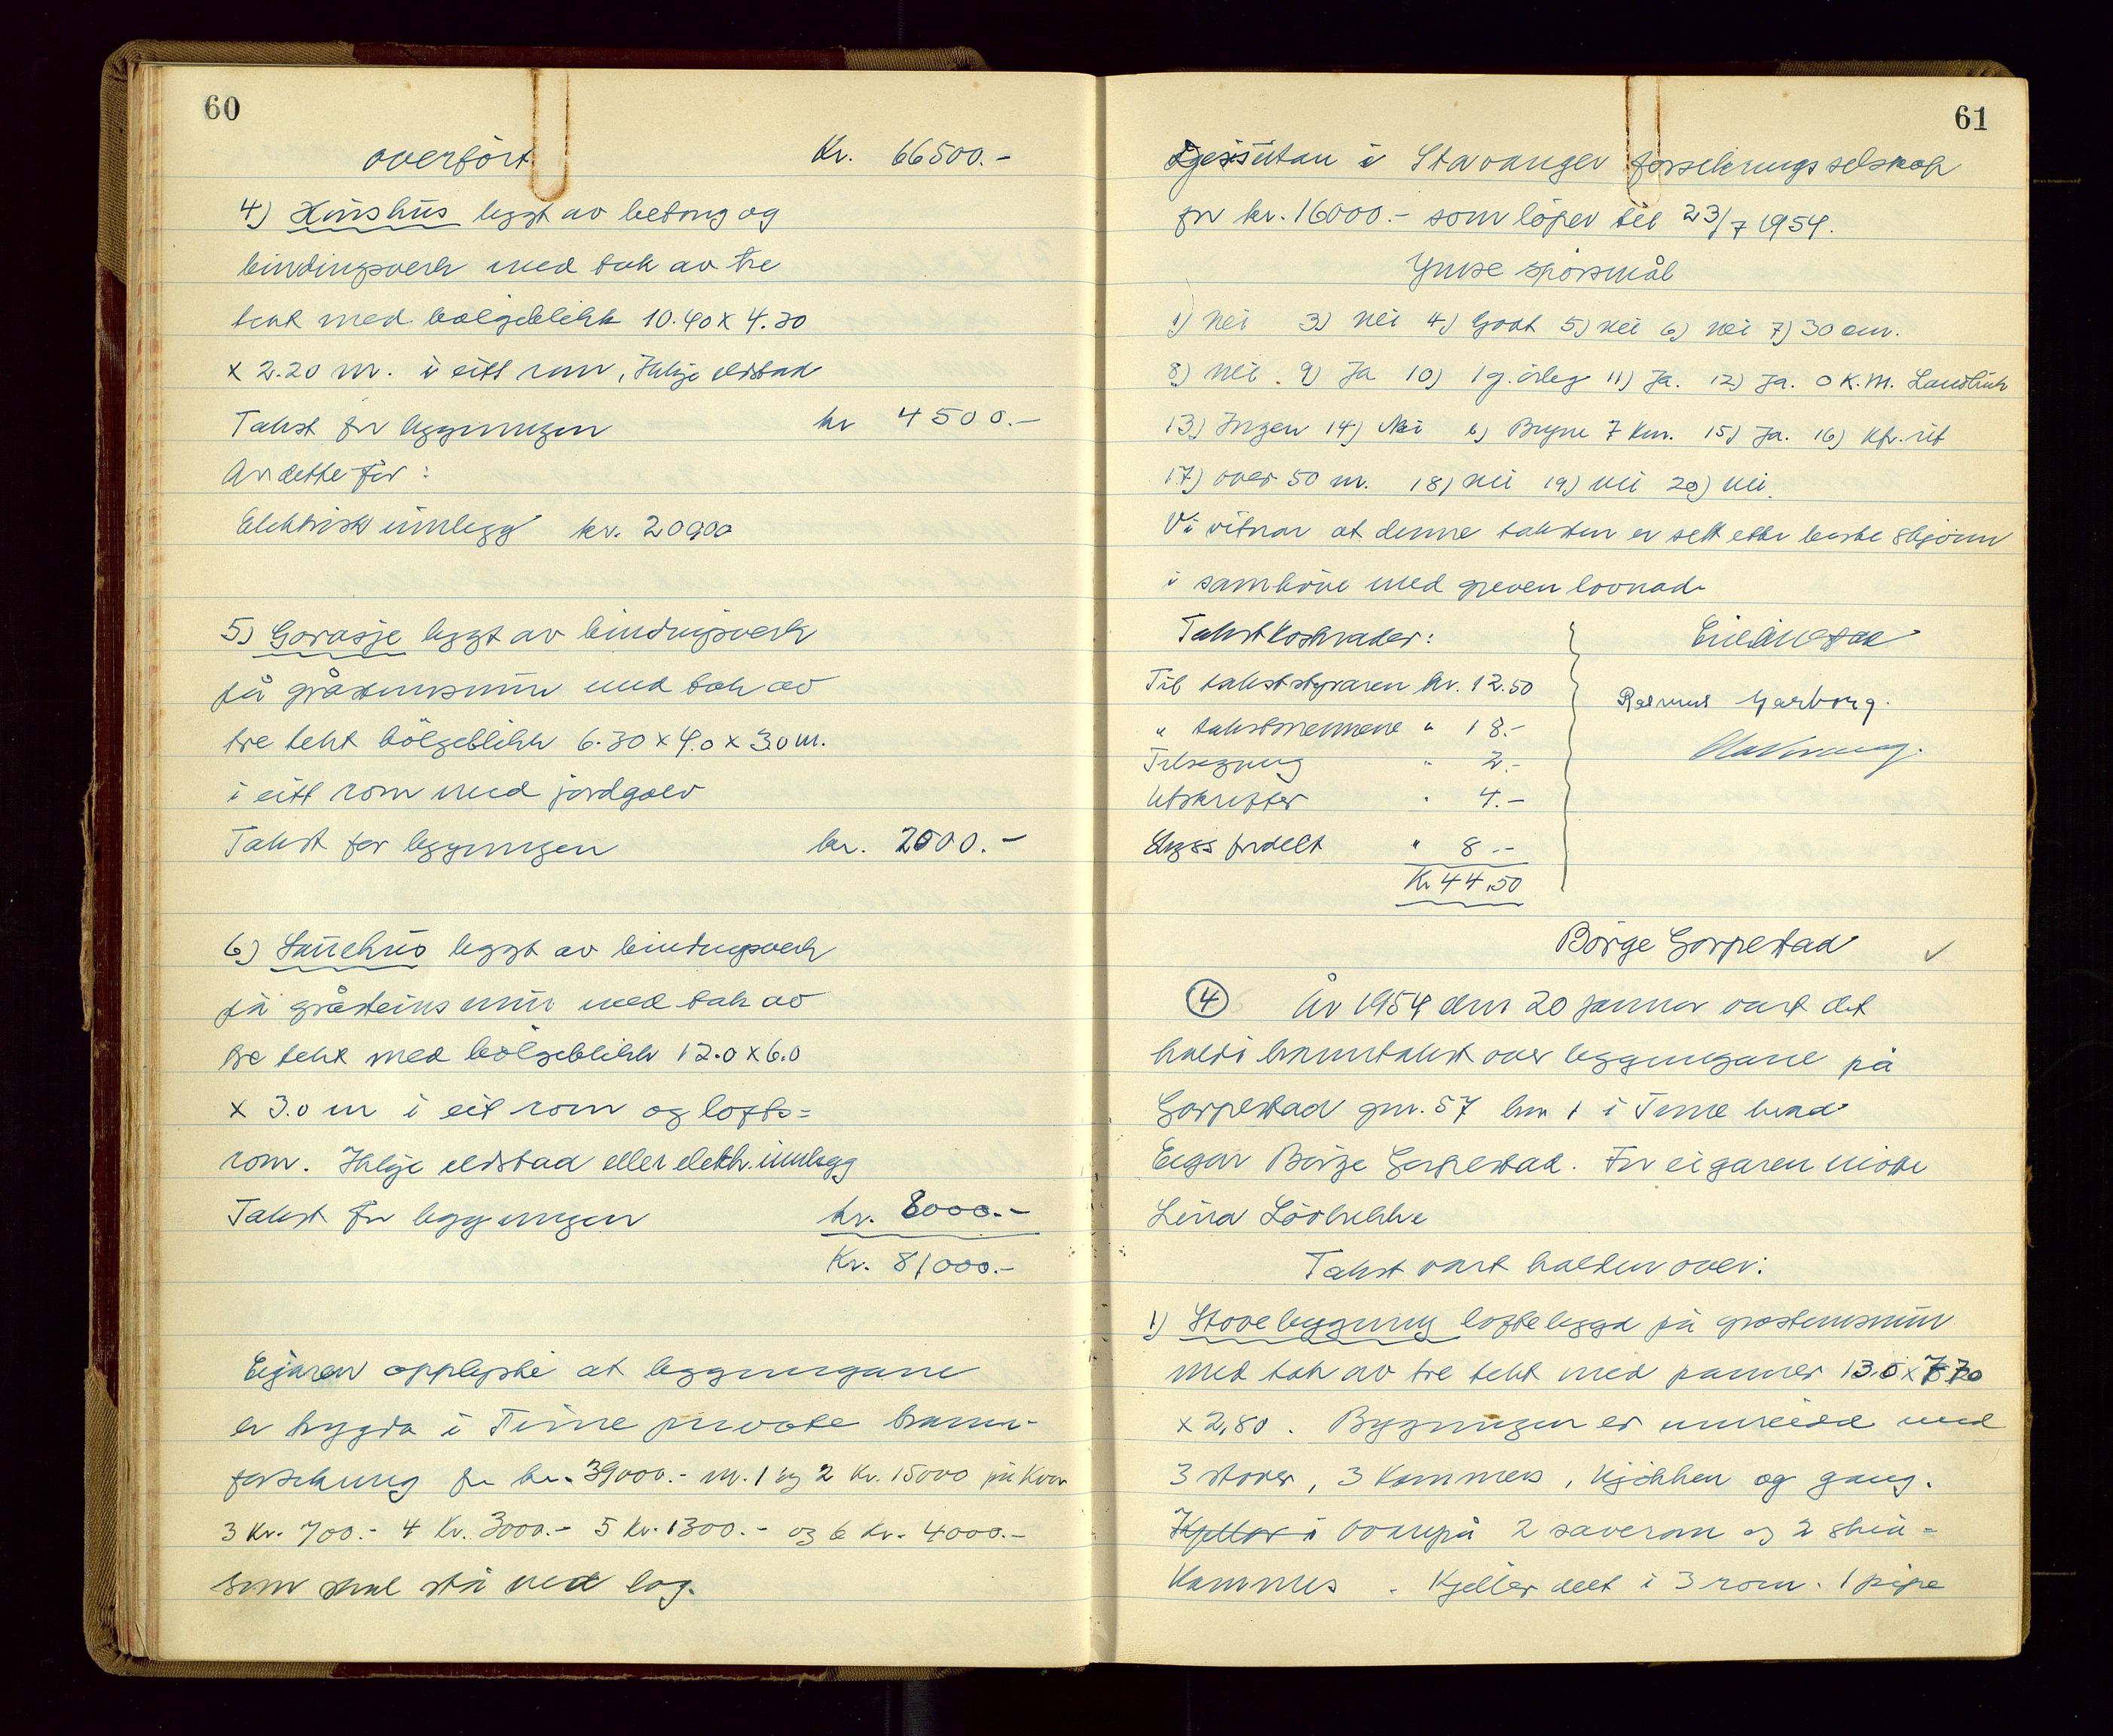 60
overført Kr. 66500.-
4) Hønshus bygt av betong og
bindingsverk med tak av tre
tekt med bølgeblikk 10.40 x 4.30
x 2.20 m. i eitt rom, Ikkje eldstad
Takst for bygningen kr 4500.-
Av dette for:
Elektrisk innlegg kr. 20000
5) Garasje bygt av bindingsverk
på gråsteinsmur med tak av
tre tekt bølgeblikk 6.30 x 4.0 x 3.0 m.
i eitt rom med jordgolv
Takst for bygningen kr. 2000.-
6) bygt av bindingsverk
på gråsteinsmur med tak av
tre tekt med bølgeblikk 12.0 x 6.0
x 3.0 m i eit rom og lofts=
rom. Ikkje eldstad eller elektr. innlegg
Takst for bygningen kr. 8000.-
Kr. 81000.-
Eigaren opplyste at bygningane
er trygda i Time private brann-
forsikring for kr. 39000.- nr. 1 og 2 Kr. 15000 på kvar
3 Kr. 700.- 4 Kr. 3000.- 5 Kr. 1300.- og 6 Kr. 4000.-
som skal stå ved lag.
61
Dessutan i Stavanger forsikringsselskap
for kr. 16000.- som løper til 23/7 1954.
Ymse spørsmål
1) Nei 3) Nei 4) Godt 5) Nei 6) Nei 7) 30 cm.
8) Nei. 9) Ja 10) 1 g. årleg 11) Ja. 12) Ja. 0 K.M.
13) Ingen 14) Nei b) Bryne 7 km. 15) Ja. 16) Kfr. rit
17) over 50 m. 18) Nei 19) Nei 20) Nei.
Vi vitnar at denne taksten er sett etter beste skjønn
i samhøve med greven lovnad.
Takstkostnader:
Til takststyraren kr. 12.50
" takstmennene " 18.-
Tilsegning " 2.-
Utskrifter " 4.-
Skyss fordelt " 8.-
Kr 44,50
Rasmus Garborg.
Børge Gorpestad ✓
4 År 1954 den 20 januar vart det
haldi branntakst over bygningane på
Gorpestad gnr. 57 bnr 1 i Time herad
Eigar Børge Gorpestad. For eigaren møtte
Lina
Takst vart halden over:
1) Stovebygning loftsbygd på gråsteinsmur
med tak av tre tekt med panner 13.0 x 7.70
x 2,80. Bygningen er innreidd med
3 stover, 3 kammers, kjøkken og gang.
Kjeller i Ovanpå 2 soverom og 2 skrå=
kammers. Kjeller delt i 3 rom. 1 pipe